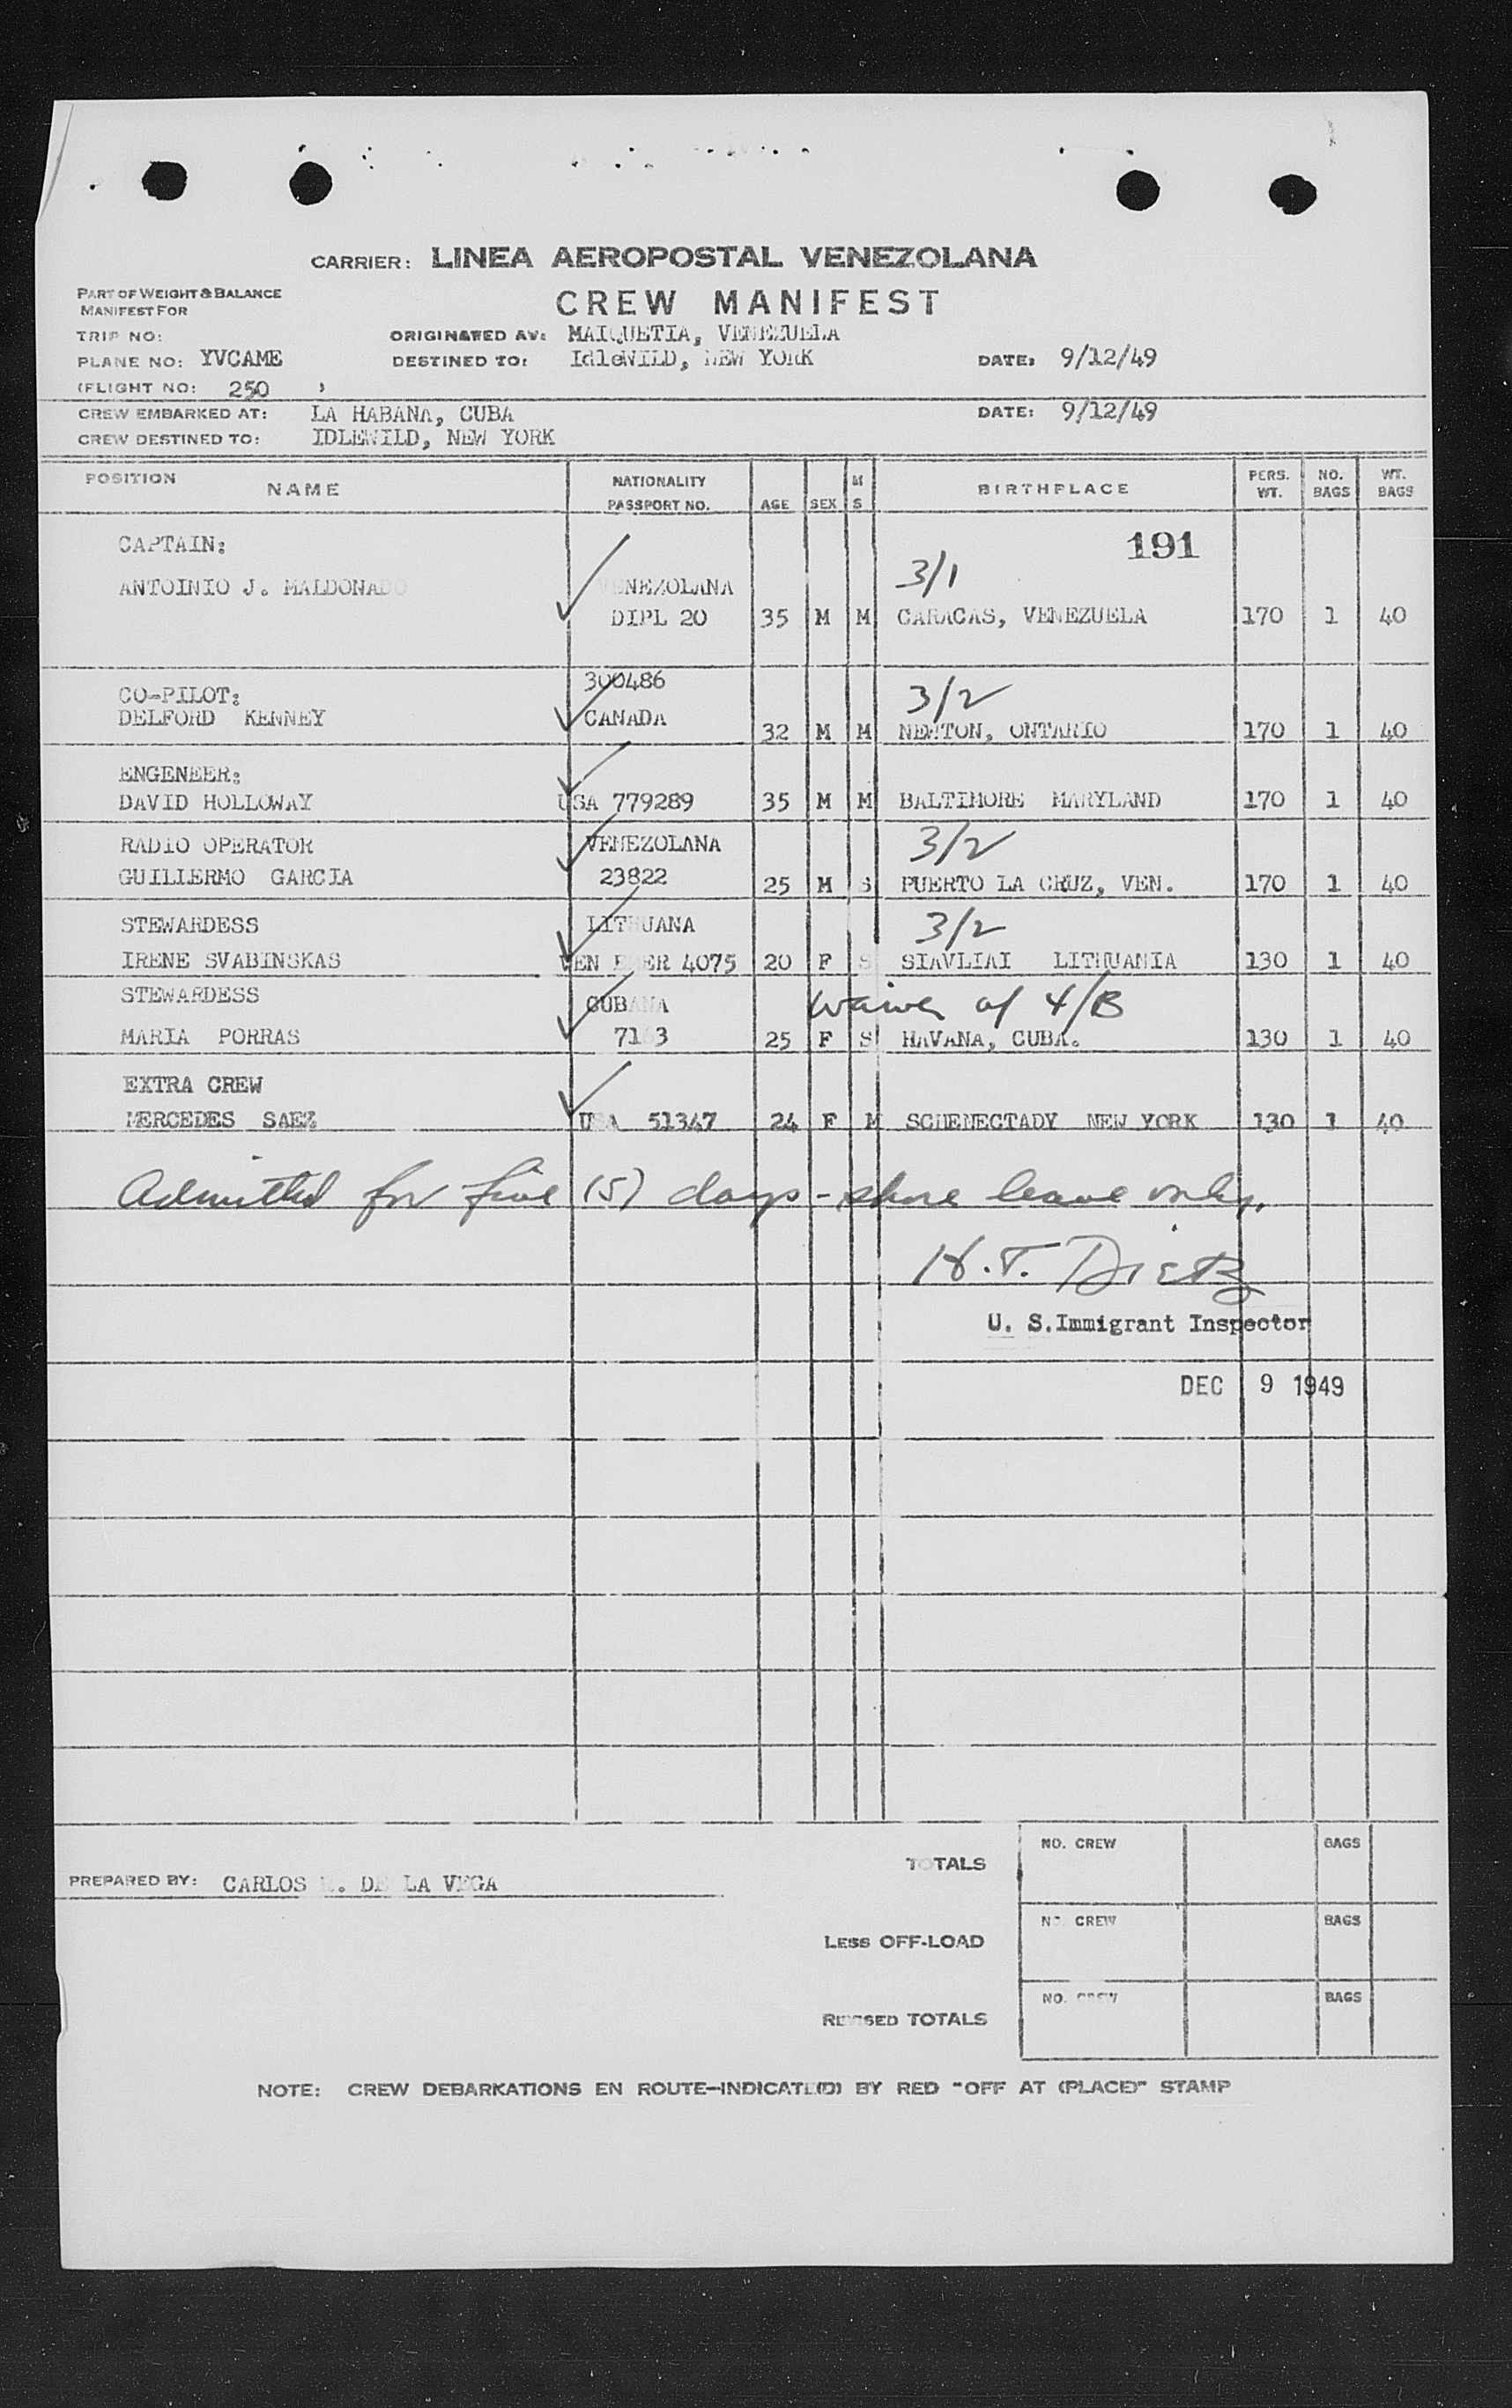 CARRIER: LINEA AEROPOSTAL VENEZOLANA
PART OF WEIGHT & BALANCE
MANIFEST FOR
CREW MANIFEST
TRIP NO: ORIGINATED AT: MAIQUETIA, VENEZUELA
PLANE NO: YVCAME DESTINED TO: IdleWILD, NEW YORK DATE: 9/12/49
(FLIGHT NO: 250 )
CREW EMBARKED AT: LA HABANA, CUBA DATE: 9/12/49
CREW DESTINED TO: IDLEWILD, NEW YORK
POSITION NAME NATIONALITY PASSPORT NO. AGE SEX M S BIRTHPLACE PERS. WT. NO. BAGS WT. BAGS
CAPTAIN: 191
ANTOINIO J. MALDONADO VENEZOLANA 3/1
DIPL 20 35 M M CARACAS, VENEZUELA 170 1 40
CO-PILOT: 300486 3/2
DELFORD KENNEY CANADA 32 M M NEWTON, ONTARIO 170 1 40
ENGENEER:
DAVID HOLLOWAY USA 779289 35 M M BALTIMORE MARYLAND 170 1 40
RADIO OPERATOR VENEZOLANA 3/2
GUILLERMO GARCIA 23822 25 M S PUERTO LA CRUZ, VEN. 170 1 40
STEWARDESS LITHUANA 3/2
IRENE SVABINSKAS VEN ER 4075 20 F S SIAVLIAI LITHUANIA 130 1 40
STEWARDESS CUBANA waiver of 4/B
MARIA PORRAS 25 F S HAVANA, CUBA. 130 1 40
EXTRA CREW
MERCEDES SAEZ USA 51347 24 F M SCHENECTADY NEW YORK 130 1 40
Admitted for five (5) days - shore leave only.
H. T. Dietz
U. S. Immigrant Inspector
DEC 9 1949
TOTALS NO. CREW BAGS
PREPARED BY: CARLOS DE LA VEGA
LESS OFF-LOAD NO. CREW BAGS
REVISED TOTALS NO. CREW BAGS
NOTE: CREW DEBARKATIONS EN ROUTE—INDICATE(D) BY RED "OFF AT (PLACE)" STAMP